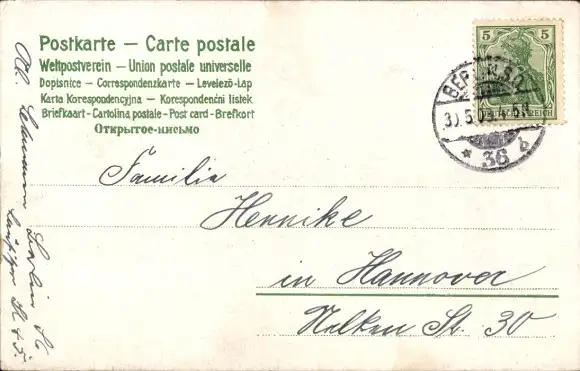 Postkarte — Carte postale
Weltpostverein — Union postale universelle
Dopisnice - Correspondenzkarte - Levelező-Lap
Karta Korespondencyjna - Korespondenční lístek
Briefkaart - Cartolina postale - Post card - Brefkort
Открытое-письмо
5 5
BERLIN S.O.
36 b
Familie
Hennike
in Hannover
Nelken St. 30
Berlin